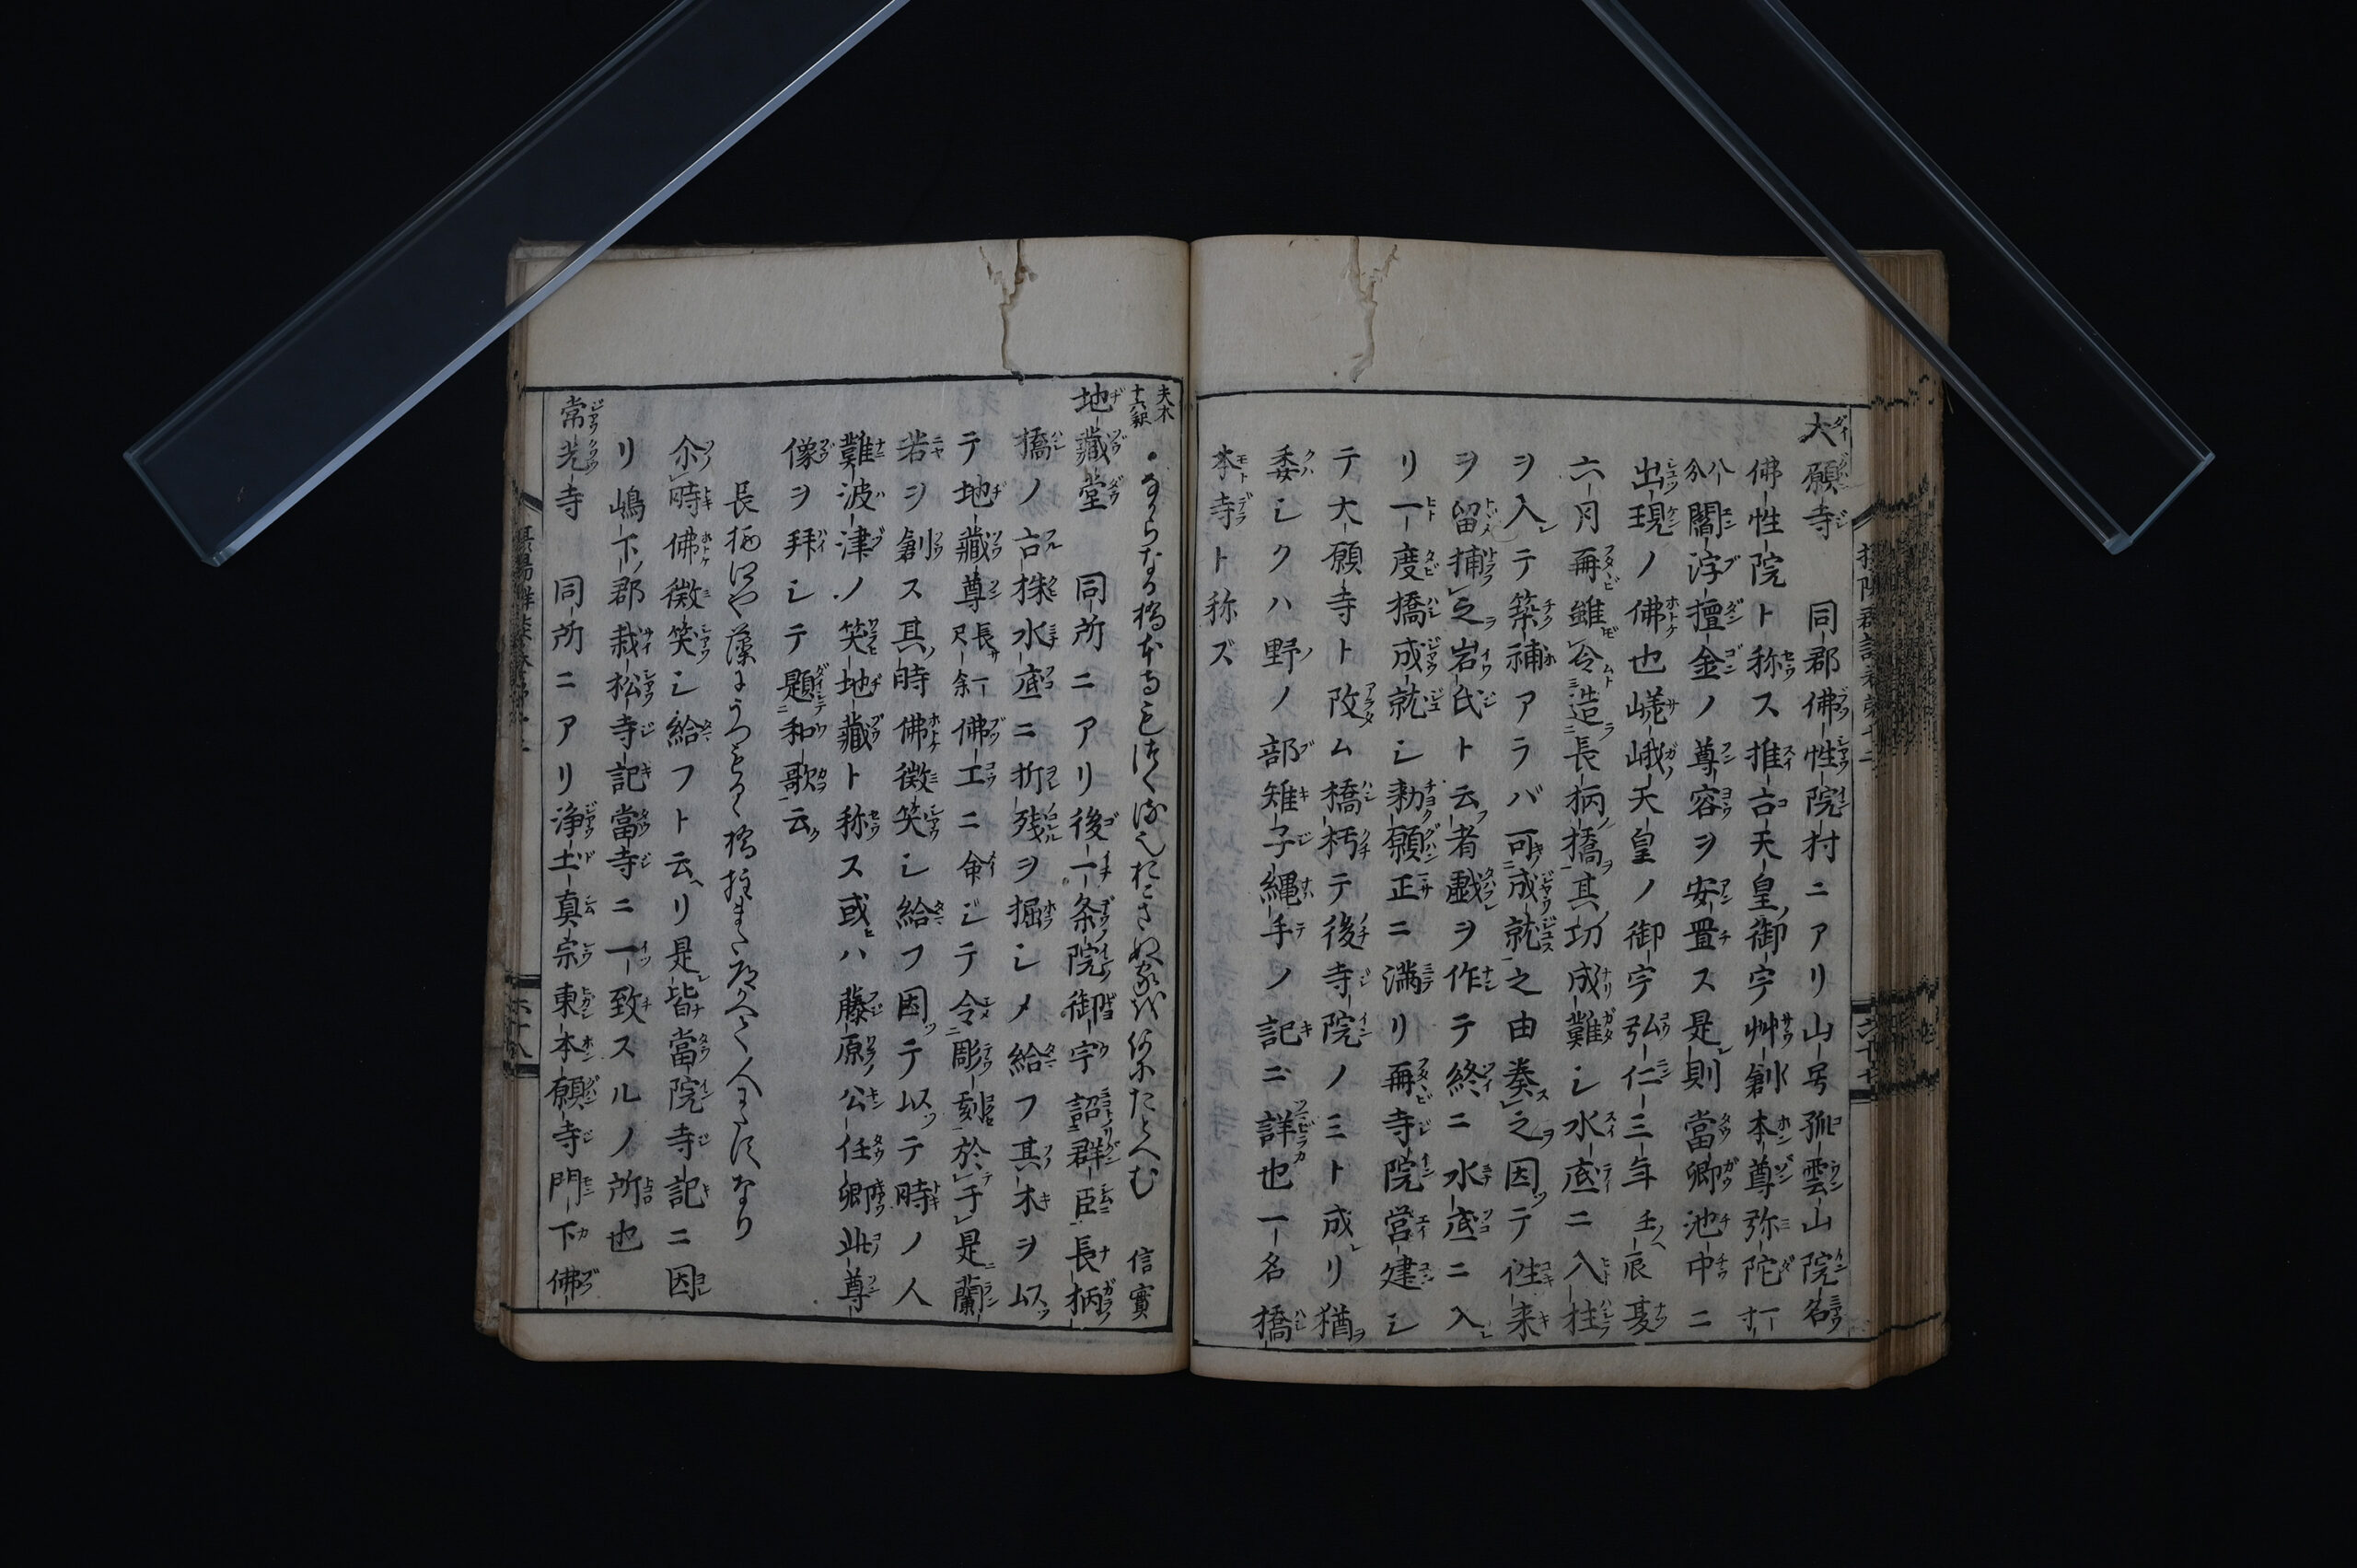 大願寺　同郡佛性院村ニアリ山号孤雲山院名
佛性院ト称ス推古天皇御宇艸創本尊弥陀一寸
八分閻浮檀金ノ尊容ヲ安置ス是則當卿池中ニ
出現ノ佛也嵯峨天皇ノ御宇弘仁三年壬辰夏
六月再雖令造長柄橋其功成難シ水底ニ入柱
ヲ入テ築補アラバ可成就之由奏之因テ徃来
ヲ留捕之岩氏ト云者戯ヲ作テ終ニ水底ニ入
リ一度橋成就シ勅願正ニ満リ再寺院営建シ
テ大願寺ト改ム橋朽テ後寺院ノミト成リ猶
委シクハ野ノ部雉子縄手ノ記ニ詳也一名橋
本寺ト称ズ
夫木
十六釈
信實
地藏堂　同所ニアリ後一条院御宇詔群臣長柄
橋ノ古株水底ニ折残ヲ掘シメ給フ其木ヲ以
テ地藏尊長尺余一佛工ニ命ジテ令彫刻於于是蘭
若ヲ創ス其時佛微笑シ給フ因テ以テ時ノ人
難波津ノ笑地藏ト称ス或ハ藤原公任卿此尊
像ヲ拜シテ題和歌云
尒時佛微笑シ給フト云ヘリ是皆當院寺記ニ因
リ嶋下郡栽松寺記當寺ニ一致スルノ所也
常光寺　同所ニアリ浄土真宗東本願寺門下佛